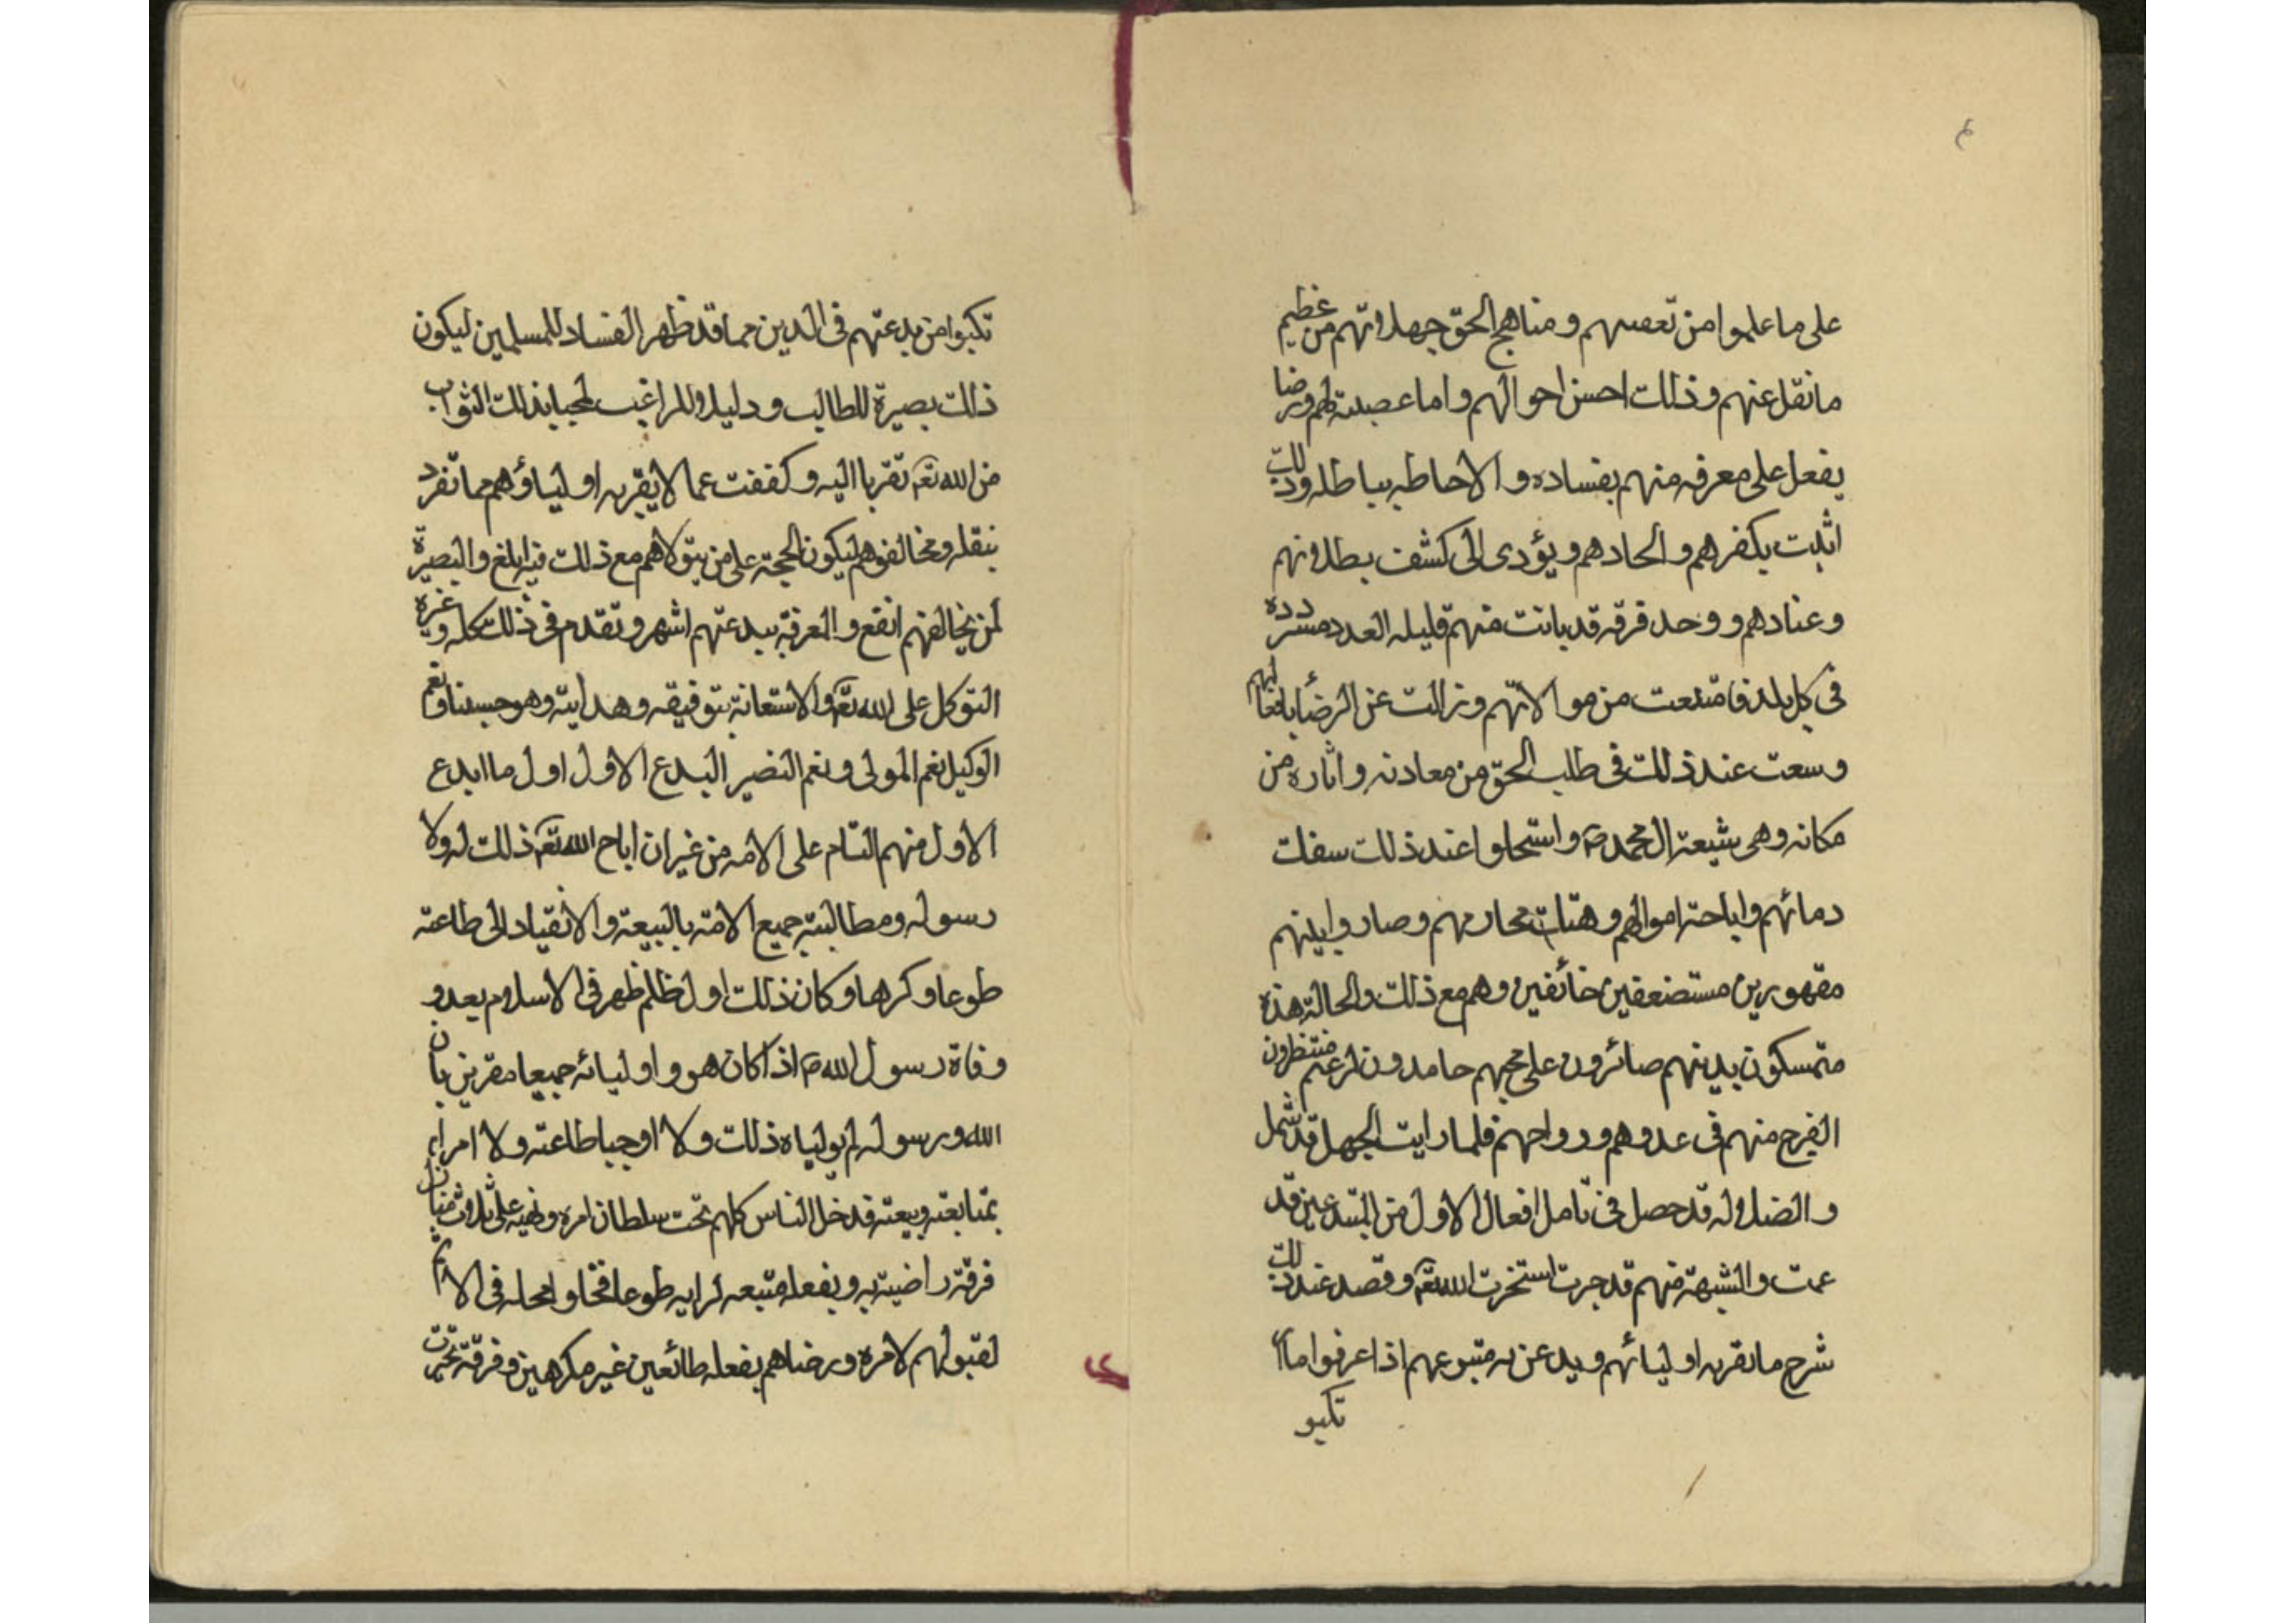 على ما علموا من تعصبهم و مناهج الحق جهلا وانهم من عظيم
ما نقل عنهم و ذلك احسن احوالهم و اما عصبية لهم ورضا
بفعل على معرفه منهم بفساده و الاحاطه بباطله وذلك
اثبت بكفرهم و الحادهم و يؤدى الى كشف بطلانهم
و عنادهم و وحد فرقه قد بانت منهم قليله العدد مشرده
فى كل بلد فامتنعت من موالاتهم و زالت عن الرضا بافعالهم
و سعت عند ذلك فى طلب الحق من معادنه و اثاره من
مكانه و هى شيعة ال محمد ص و استحلوا عند ذلك سفك
دمائهم و اباحة اموالهم و هتك محارمهم و صاروا بينهم
مقهورين مستضعفين خائفين و هم مع ذلك و الحالة هذه
متمسكون بدينهم صائرون على حجهم حامدون لربهم منتظرون
الفرج منهم فى عدوهم و رواحهم فلما رايت الجهل قد شمل
و الضلاله قد حصل فى تامل افعال الاول من المبتدعين قد
عمت و الشبهة منهم قد جرت استخرت الله تعه و قصد عند ذلك
شرح ما نقر به اوليائهم و يدعن به متبوعهم اذا عرفوا ما
تكبو
تكبوا من بدعتهم فى الدين مما قد ظهر الفساد للمسلمين ليكون
ذلك بصيرة للطالب و دليلا وللراغب لمحيا بذلك الثواب
من الله تعه تقربا اليه و كففت عما لا يقربه اولياؤهم مما تفرد
بنقله و مخالفوهم ليكون الحجة على من يتولاهم مع ذلك فيه ابلغ و البصيرة
لمن يخالفهم انفع و المعرفة ببدعتهم اشهر و تقدم فى ذلك كله و غيره
التوكل على الله تعه و الاستعانة بتوفيقه و هدايته و هو حسبنا و نعم
الوكيل نعم المولى و نعم النصير البدع الاول اول ما ابدع
الاول منهم التام على الامه من غير ان اباح الله تعه ذلك له ولا
رسوله و مطالبته جميع الامة بالبيعة و الانقياد الى طاعته
طوعا و كرها و كان ذلك اول ظلم ظهر فى الاسلام بعد و
وفاة رسول الله ص اذ كان هو و اوليائه جميعا مقرين بان
الله و رسوله لم يولياه ذلك ولا اوجبا طاعته ولا امرا
بمتابعته وبيعته فدخل الناس كلهم تحت سلطان امره و نهيه على ثلاث
فرقة راضية به و بفعله متبعه لرايه طوعا فحلوا محله فى الاثم
لقبولهم لامره و رضاهم بفعله طائعين غير مكرهين و فرقة تحيرت